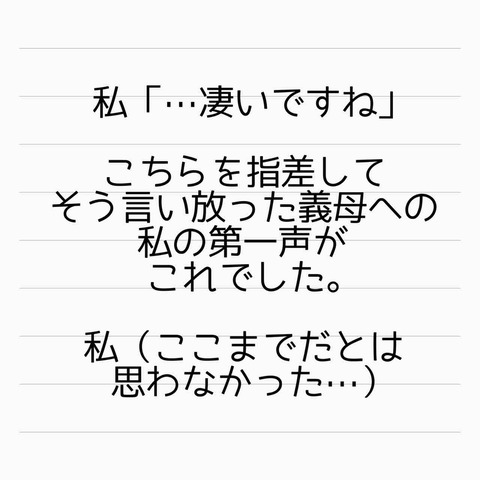 私「…凄いですね」
こちらを指差して
そう言い放った義母への
私の第一声が
これでした。
私（ここまでだとは
思わなかった…）